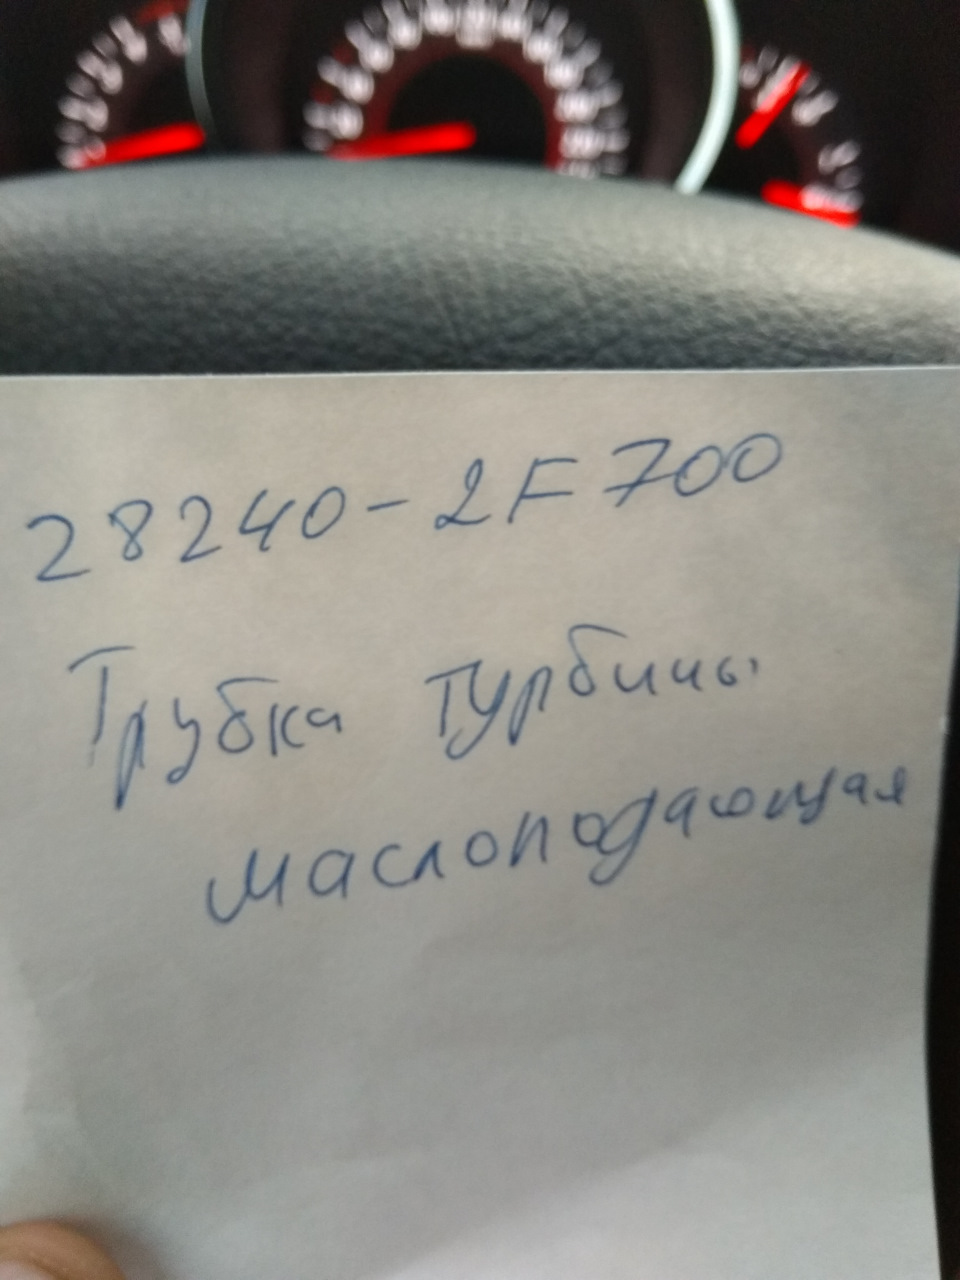 28240-2F700
Трубка турбины
маслоподающая